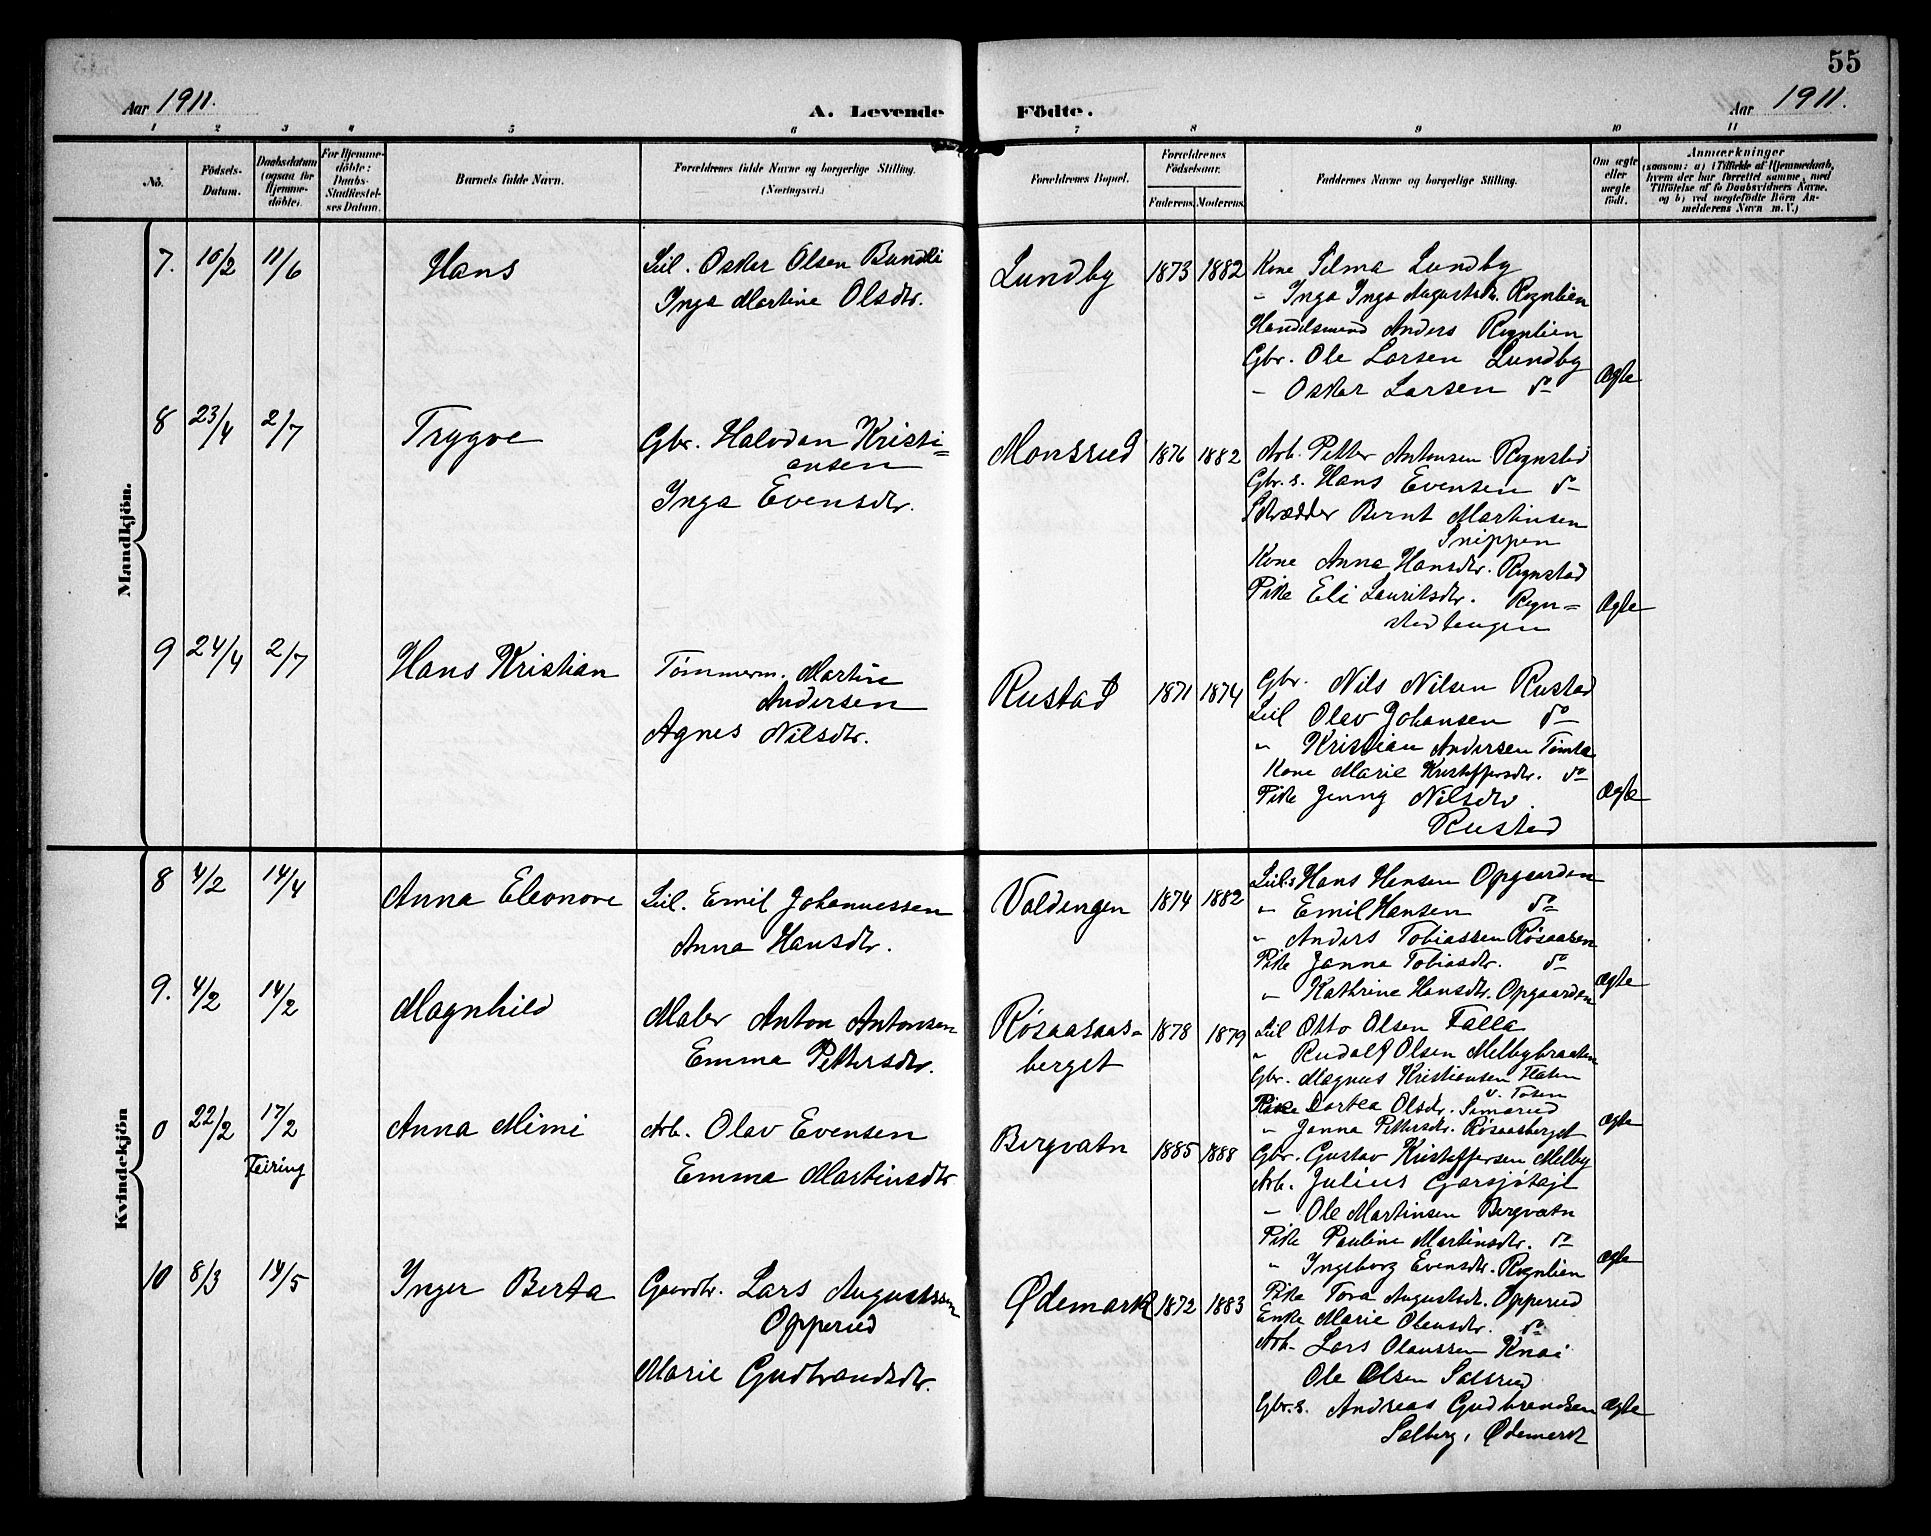 55
Aar 1911.
A. Levende Födte.
Aar 1911.
1 2 3 4 5 6 7 8 9 10 11
No.
Födsels-Datum.
Daabsdatum (ogsaa for Hjemme-döbte).
For Hjemme-döbte: Daabs-Stadfæstel-ses Datum.
Barnets fulde Navn.
Forældrenes fulde Navne og borgerlige Stilling. (Næringsvei.)
Forældrenes Bopæl.
Forældrenes Födselsaar.
Faderens. Moderens.
Faddernes Navne og borgerlige Stilling.
Om ægte eller uægte födt.
Anmærkninger
(saasom: a) i Tilfælde af Hjemmedaab, hvem der har forrettet samme, med Tilföielse af to Daabsvidners Navne, og b) ved uægtefödte Börn An-melderens Navn m. V.)
Mandkjön.
7. 10/2 11/6 Hans
Lul. Oskar Olsen Bundli
Inga Martine Olsdtr.
Lundby 1873 1882
Kone Selma Lundby
" Inga Inga Augustsdtr. Rognlien
Handelsmand Anders Rognlien
Gbr. Ole Larsen Lundby
- Oskar Larsen do
Ægte
8 23/4 2/7 Trygve
Gbr. Halvdan Kristi=
ansen
Inga Evensdtr.
Monsrud 1876 1882
Arb. Petter Antonsen Rognstad
Gbr. s. Hans Evensen do
Skrædder Bernt Martinsen
Snippen
Kone Anna Hansdtr. Rognstad
Pike Eli Lauritsdtr. Rogn=
stadtangen
Ægte
9 24/4 2/7 Hans Kristian
Tømmerm. Martin
Andersen
Agnes Nilsdtr.
Rustad 1871 1874
Gbr. Nils Nilsen Rustad
Lul Olav Johansen do
" Kristian Andersen Tømta
Kone Marie Kristoffersdtr. do
Pike Jenny Nilsdtr.
Rustad
Ægte
Kvindekjön
8 4/2 14/4 Anna Eleonore
Lul. Emil Johannessen
Anna Hansdtr.
Valdengen 1874 1882
Lul.s Hans Hansen Opgaarden
" Emil Hansen do
" Anders Tobiassen Røsaasen
Pike Janna Tobiasdtr. do
" Kathrine Hansdtr. Opgaarden
Ægte
9. 4/2 14/2 Magnhild
Maler Anton Antonsen
Emma Pettersdtr.
Røsaasaas-
berget
1878 1879
Lul Otto Olsen Falla
" Rudolf Olsen Melbybraaten
Gbr. Magnus Kristiansen
v. Toten
Pike Dortea Olsdtr. Simarud
" Janna Pettersdtr. Røsaasberget
Ægte
0 22/2 17/2
Feiring
Anna Mimi
Arb. Olav Evensen
Emma Martinsdtr
Bergvatn 1885 1888
Gbr. Gustav Kristoffersen Melby
Arb. Julius Garsjøhøjt
- Ole Martinsen Bergvatn
Pike Pauline Martinsdtr. do
" Ingeborg Evensdtr. Rognlien
Ægte
10 8/3 14/5 Inger Berta
Gaardbr. Lars Augustssen
Opperud
Marie Gudbrandsdtr.
Ødemark 1872 1883
Pike Tora Augustsdt. Opperud
Enke Marie Olensdtr. do
Arb. Lars Olaussen Knai
Ole Olsen Salsrud
Gbr.s. Andreas Gudbrandsen
Solberg, Ødemark
Ægte